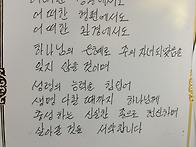 어떠한 형편에서도
어떠한 환경에서도
하나님의 은혜로 주의 자녀되었음을
잊지 않을 것이며
성령의 능력을 힘입어
생명 다할 때까지 하나님께
충성하는 신실한 종으로 헌신하며
살아갈 것을 서약합니다